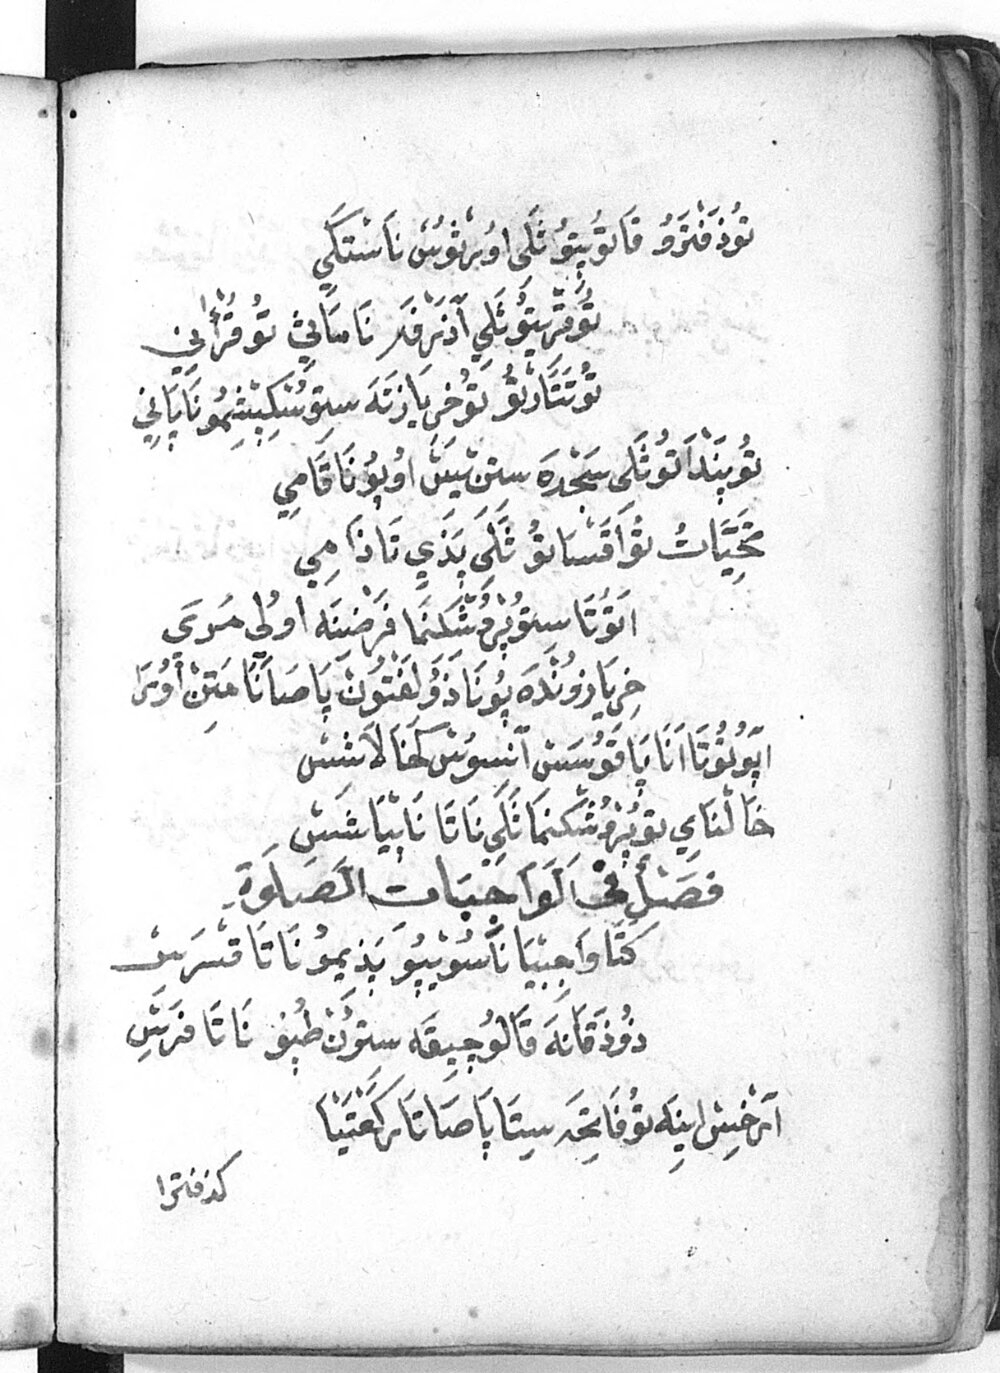 تُوذَفْتَرُو قَاتُوپِتُو ثَلَى اوُبْرثُوسْ نَاسْتَكَي
تُوتْرِيتُو ثَلَي آذَنَرْفَر نَامَاثِ تُو قُرْأَنِي
تُوتَتَارْتُو تُوخرِيَازتَه سِتوُسْكِپْشِمُو نَاپَانِي
تُوپَنْدَاتُو ثَلَى سَجْدَه ستن يَيسْ اوُپوُنَا قَامِي
تَحِيَّاتْ تُواَقَسَاتو ثَلَى پَذِي تَاذَامِي
اَتوُتَا ستوُپْروُشْكِنِمَا فَرْضِنَه اوُلَى مَرَي
خرِيَازوُنْدَه پوُنَاذَوُلَفْتوُنْ پَاصَانَا مَتِنْ اوُرَا
اپوُتوُتَا اَنَا پَاقوُسَسْ آنسوُسْ كَفَالَاسَسْ
خَالْنَايِ توُپْروُشْكِنِمَا ثَلَى نَاتَا نَاپْيَاسَسْ
فَصْلٌ فِي الْوَاجِبَات الصَلَوة
كَتَا وَاجِبْيَا نَاسوُيپوُ پَذِيمُو نَاتَا قسَرَسْ
ذوُذَقَانَه قَالوُجِيقَه ستوُنْ طوُپوُ نَاتَا فَرَسْ
آرْخِسْ اينَه توُ فَاتِحَه سِتَا پَاصَاتَا رَكَعَتْيَا
كذفترا